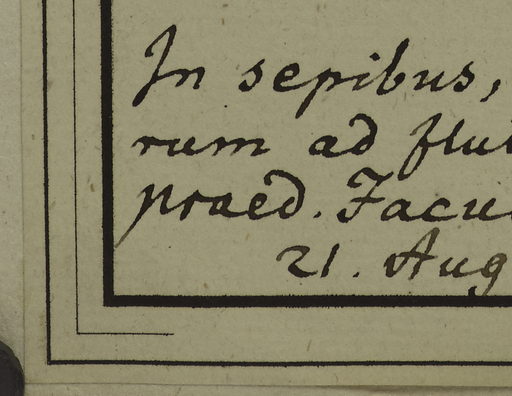 In sepibus,
rum ad flui
praed. Facu
21. Aug